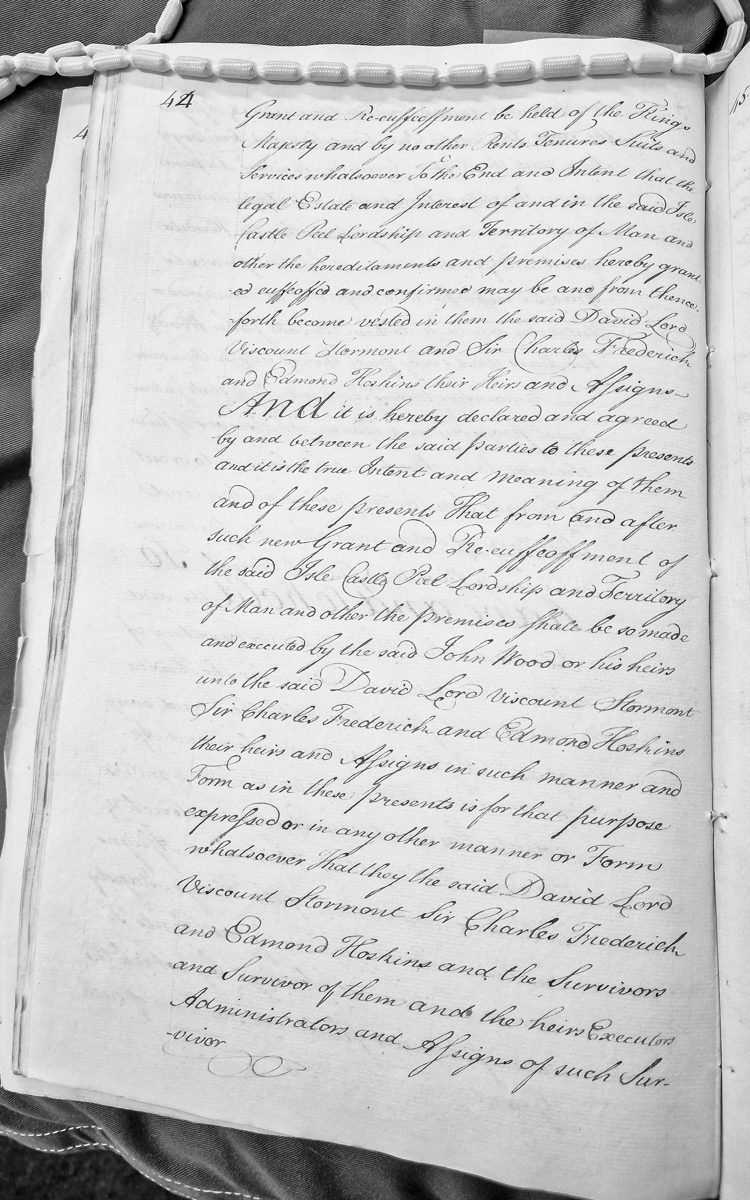 44
Grant and Re-euffeoffment be held of the Kings
Majesty and by no other Rents Tenures Suits and
Services whatsoever To the End and Intent that the
legal Estate and Interest of and in the said Isle
Castle Peel Lordship and Territory of Man and
other the hereditaments and premises hereby grant
-ed euffeoffed and confirmed may be and from thence-
forth become vested in them the said David Lord
Viscount Stormont and Sir Charles Frederick
and Edmond Hoskins their Heirs and Assigns
And it is hereby declared and agreed
by and between the said parties to these presents
and it is the true Intent and meaning of them
and of these presents That from and after
such new Grant and Re-euffeoffment of
the said Isle Castle Peel Lordship and Territory
of Man and other the premises shall be so made
and executed by the said John Wood or his heirs
unto the said David Lord Viscount Stormont
Sir Charles Frederick and Edmond Hoskins
their heirs and Assigns in such manner and
Form as in these presents is for that purpose
expressed or in any other manner or Form
whatsoever That they the said David Lord
Viscount Stormont Sir Charles Frederick
and Edmond Hoskins and the Survivors
and Survivor of them and the heirs Executors
Administrators and Assigns of such Sur-
-vivor